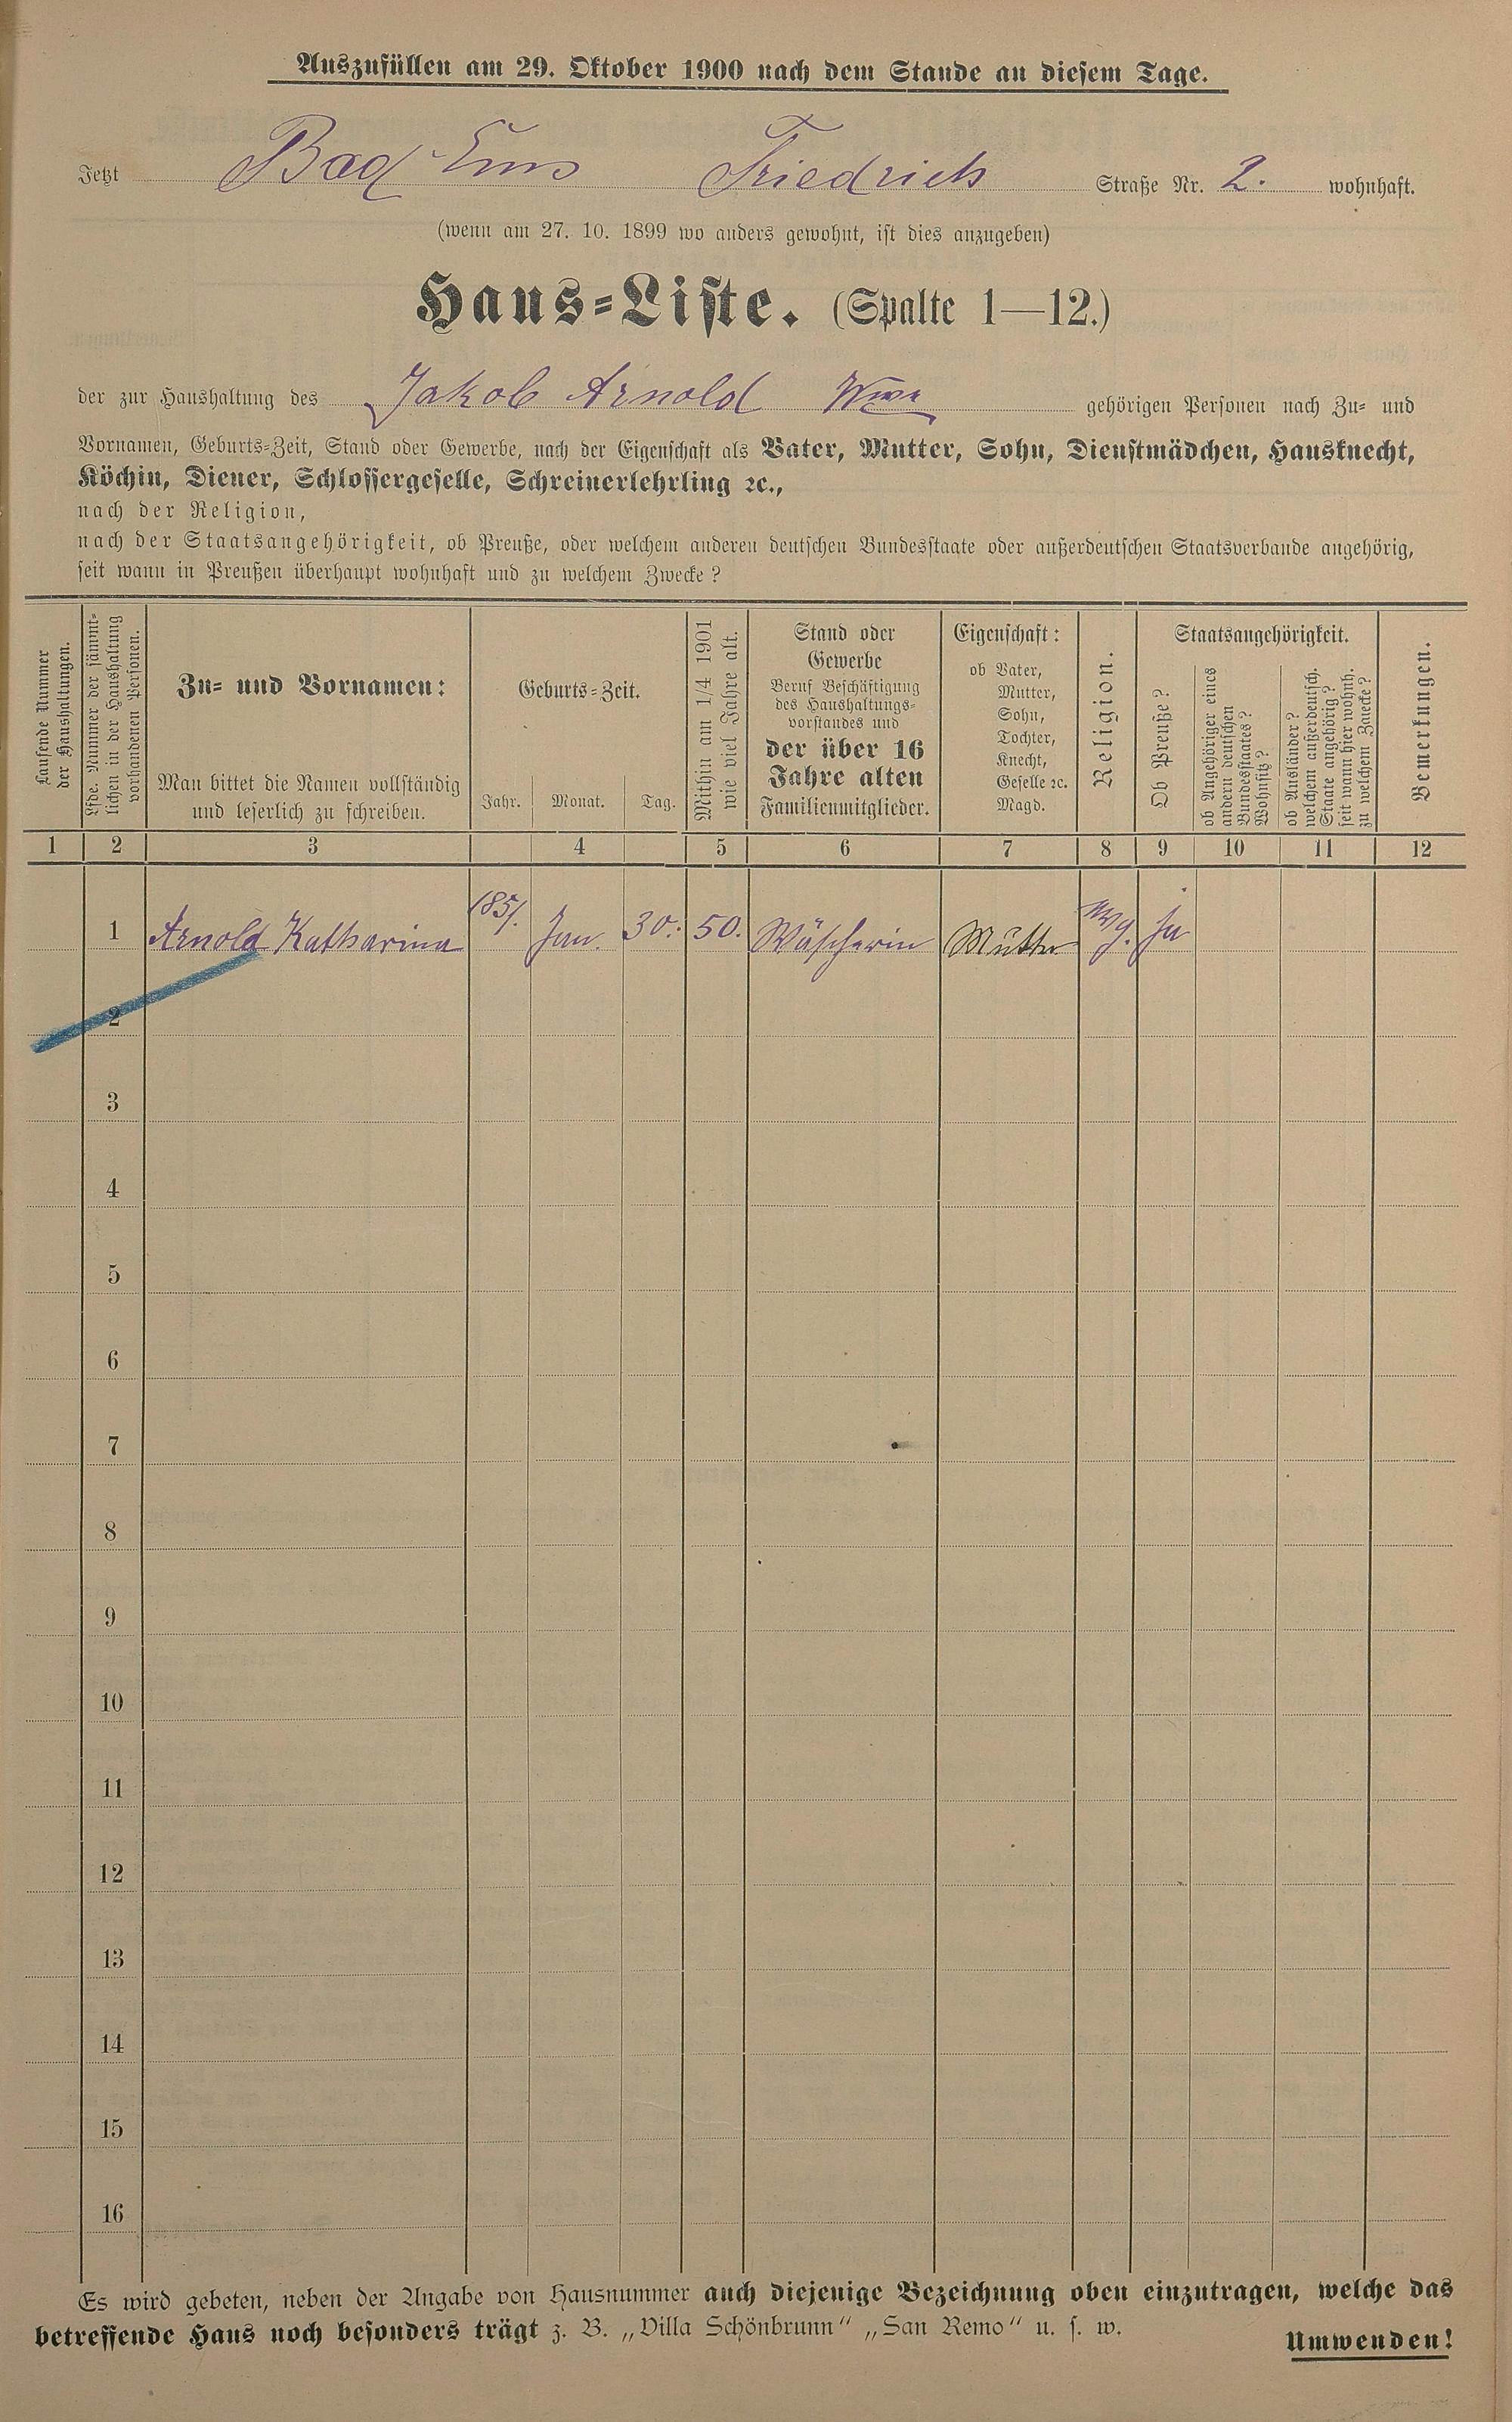 Auszufüllen am 29. Oktober 1900 nach dem Stande an diesem Tage.
Jetzt Bad Ems Friedrich Straße Nr. 2. wohnhaft.
(wenn am 27. 10. 1899 wo anders gewohnt, ist dies anzugeben)
Haus-Liste. (Spalte 1—12.)
der zur Haushaltung des Jakob Arnold Wwe gehörigen Personen nach Zu- und
Vornamen, Geburts-Zeit, Stand oder Gewerbe, nach der Eigenschaft als Vater, Mutter, Sohn, Dienstmädchen, Hausknecht,
Köchin, Diener, Schlossergeselle, Schreinerlehrling ꝛc.,
nach der Religion,
nach der Staatsangehörigkeit, ob Preuße, oder welchem anderen deutschen Bundesstaate oder außerdeutschen Staatsverbande angehörig,
seit wann in Preußen überhaupt wohnhaft und zu welchem Zwecke?
Laufende Nummer
der Haushaltungen.
Lfde. Nummer der sämmt-
lichen in der Haushaltung
vorhandenen Personen.
Zu- und Vornamen:
Man bittet die Namen vollständig
und leserlich zu schreiben.
Geburts-Zeit.
Jahr. Monat. Tag.
Mithin am 1/4 1901
wie viel Jahre alt.
Stand oder
Gewerbe
Beruf Beschäftigung
des Haushaltungs-
vorstandes und
der über 16
Jahre alten
Familienmitglieder.
Eigenschaft:
ob Vater,
Mutter,
Sohn,
Tochter,
Knecht,
Geselle ꝛc.
Magd.
Religion.
Staatsangehörigkeit.
Ob Preuße?
ob Angehöriger eines
andern deutschen
Bundesstaates?
Wohnsitz?
ob Ausländer?
welchem außerdeutsch.
Staate angehörig?
seit wann hier wohnh.
zu welchem Zwecke?
Bemerkungen.
1 2 3 4 5 6 7 8 9 10 11 12
1 Arnold Katharina 1851. Jan. 30. 50. Wäscherin Mutter evg. ja
2
3
4
5
6
7
8
9
10
11
12
13
14
15
16
Es wird gebeten, neben der Angabe von Hausnummer auch diejenige Bezeichnung oben einzutragen, welche das
betreffende Haus noch besonders trägt z. B. „Villa Schönbrunn" „San Remo" u. s. w.
Umwenden!